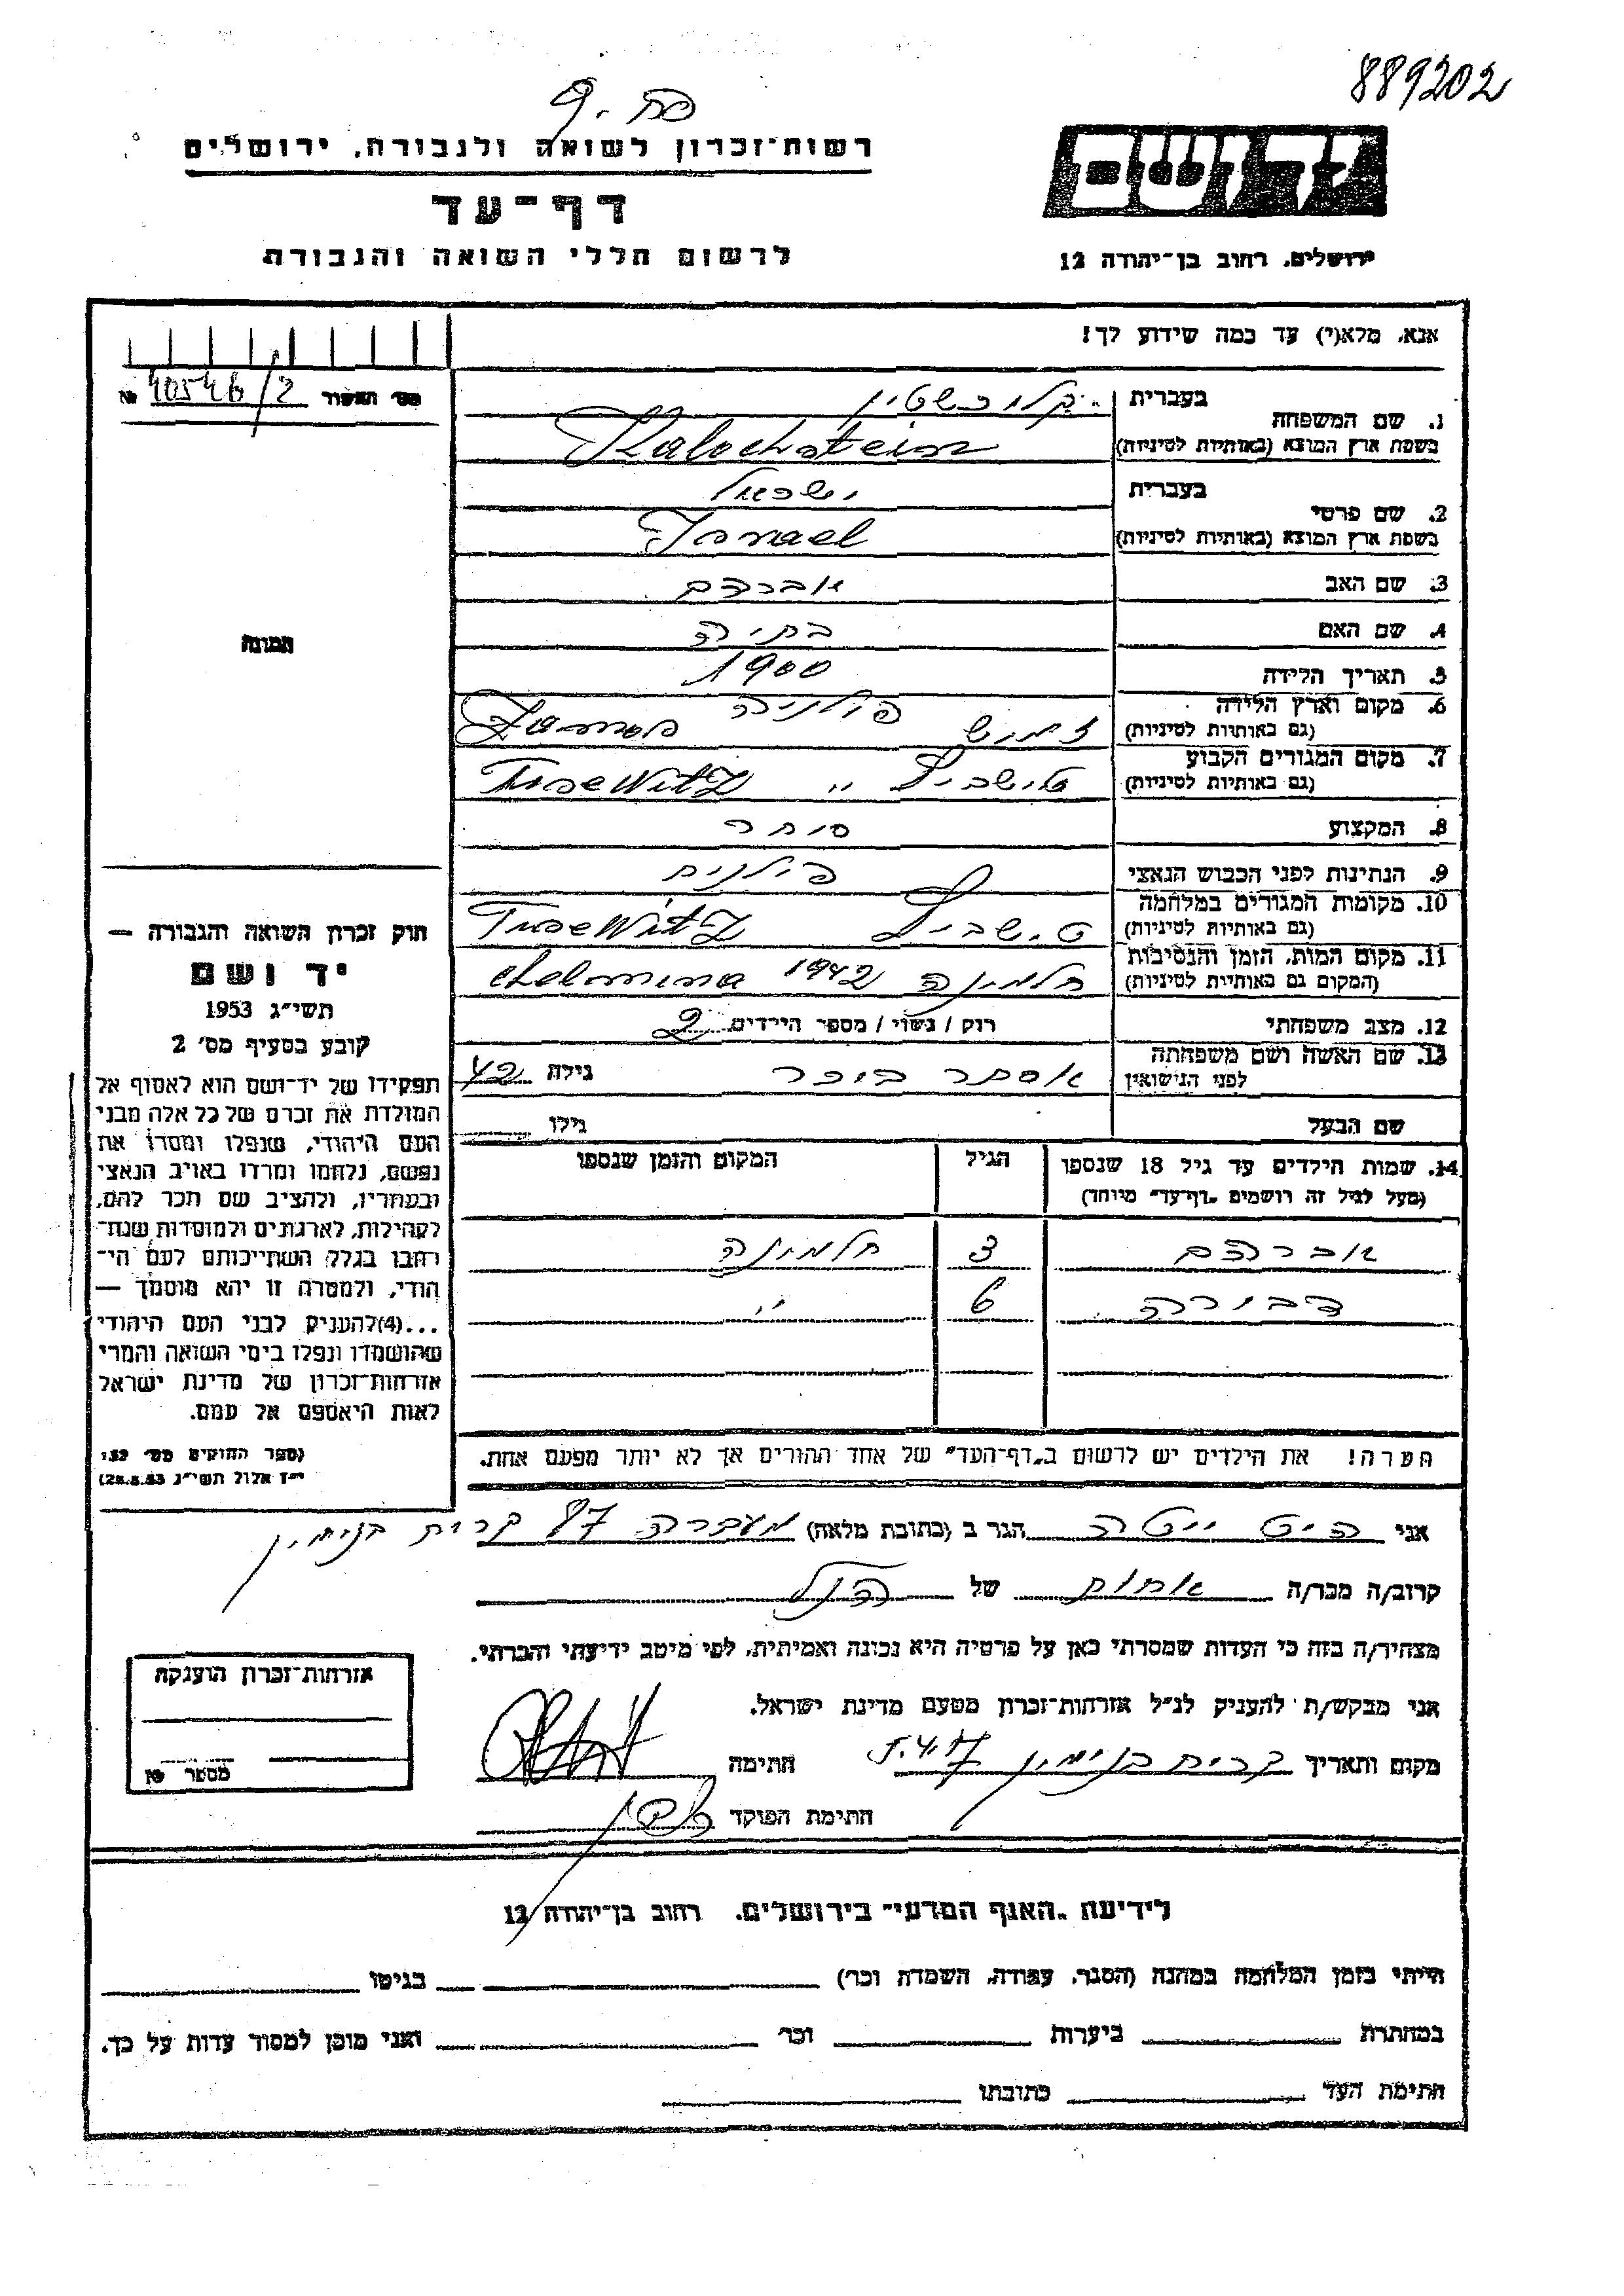 889202
רשות־זכרון לשואה ולגבורה, ירושלים
דף־עד
לרשום חללי השואה והגבורה
ירושלים, רחוב בן־יהודה 12
אנא, מלא(י) עד כמה שידוע לך!
מס׳ האשור 40546/2 №
1. שם המשפחה
בעברית קלוכשטיין
בשפת ארץ המוצא (באותיות לטיניות) Kalochstein
2. שם פרטי
בעברית ישראל
בשפת ארץ המוצא (באותיות לטיניות) Israel
3. שם האב אברהם
4. שם האם בתיה
5. תאריך הלידה 1900
6. מקום וארץ הלידה
(גם באותיות לטיניות) זמוש פולניה Zamos
7. מקום המגורים הקבוע
(גם באותיות לטיניות) טישביץ " TiseWitz
8. המקצוע סוחר
9. הנתינות לפני הכבוש הנאצי פולנית
10. מקומות המגורים במלחמה
(גם באותיות לטיניות) טישביץ TiseWitz
11. מקום המות, הזמן והנסיבות
(המקום גם באותיות לטיניות) חלמינה 1942 chelomina
12. מצב משפחתי רוק / נשוי / מספר הילדים 2
13. שם האשה ושם משפחתה
לפני הנישואין אסתר בוכר גילה 42
שם הבעל גילו
14. שמות הילדים עד גיל 18 שנספו
(מעל לגיל זה רושמים „דף־עד״ מיוחד)
הגיל
המקום והזמן שנספו
אברהם 3 חלמינה
דבורה 6 "
הערה! את הילדים יש לרשום ב„דף־העד״ של אחד ההורים אך לא יותר מפעם אחת.
התמונה
חוק זכרון השואה והגבורה —
יד ושם
תשי״ג 1953
קובע בסעיף מס׳ 2
תפקידו של יד־ושם הוא לאסוף אל
המולדת את זכרם של כל אלה מבני
העם היהודי, שנפלו ומסרו את
נפשם, נלחמו ומרדו באויב הנאצי
ובעוזריו, ולהציב שם וזכר להם,
לקהילות, לארגונים ולמוסדות שנח־
רבו בגלל השתייכותם לעם הי־
הודי, ולמטרה זו יהא מוסמך —
...(4)להעניק לבני העם היהודי
שהושמדו ונפלו בימי השואה והמרי
אזרחות־זכרון של מדינת ישראל
לאות היאספם אל עמם.
(ספר החוקים מס׳ 132,
י״ז אלול תשי״ג 28.8.53)
אני היט ייטה הגר ב (כתובת מלאה) מעברה 87 קרית בנימין
קרוב/ה מכר/ה אחות של הנ"ל
מצהיר/ה בזה כי העדות שמסרתי כאן על פרטיה היא נכונה ואמיתית, לפי מיטב ידיעתי והכרתי.
אני מבקש/ת להעניק לנ״ל אזרחות־זכרון מטעם מדינת ישראל.
מקום ותאריך קרית בנימין חתימה
חתימת הפוקד
אזרחות־זכרון הוענקה
מספר №
לידיעת „האגף המדעי״ בירושלים, רחוב בן־יהודה 12
הייתי בזמן המלחמה במחנה (הסגר, עבודה, השמדה וכו׳) בגיטו
במחתרת ביערות וכו׳ ואני מוכן למסור עדות על כך.
חתימת העד כתובתו